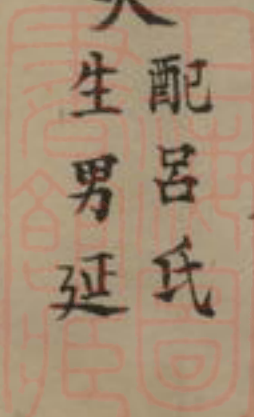 配呂氏
生男延